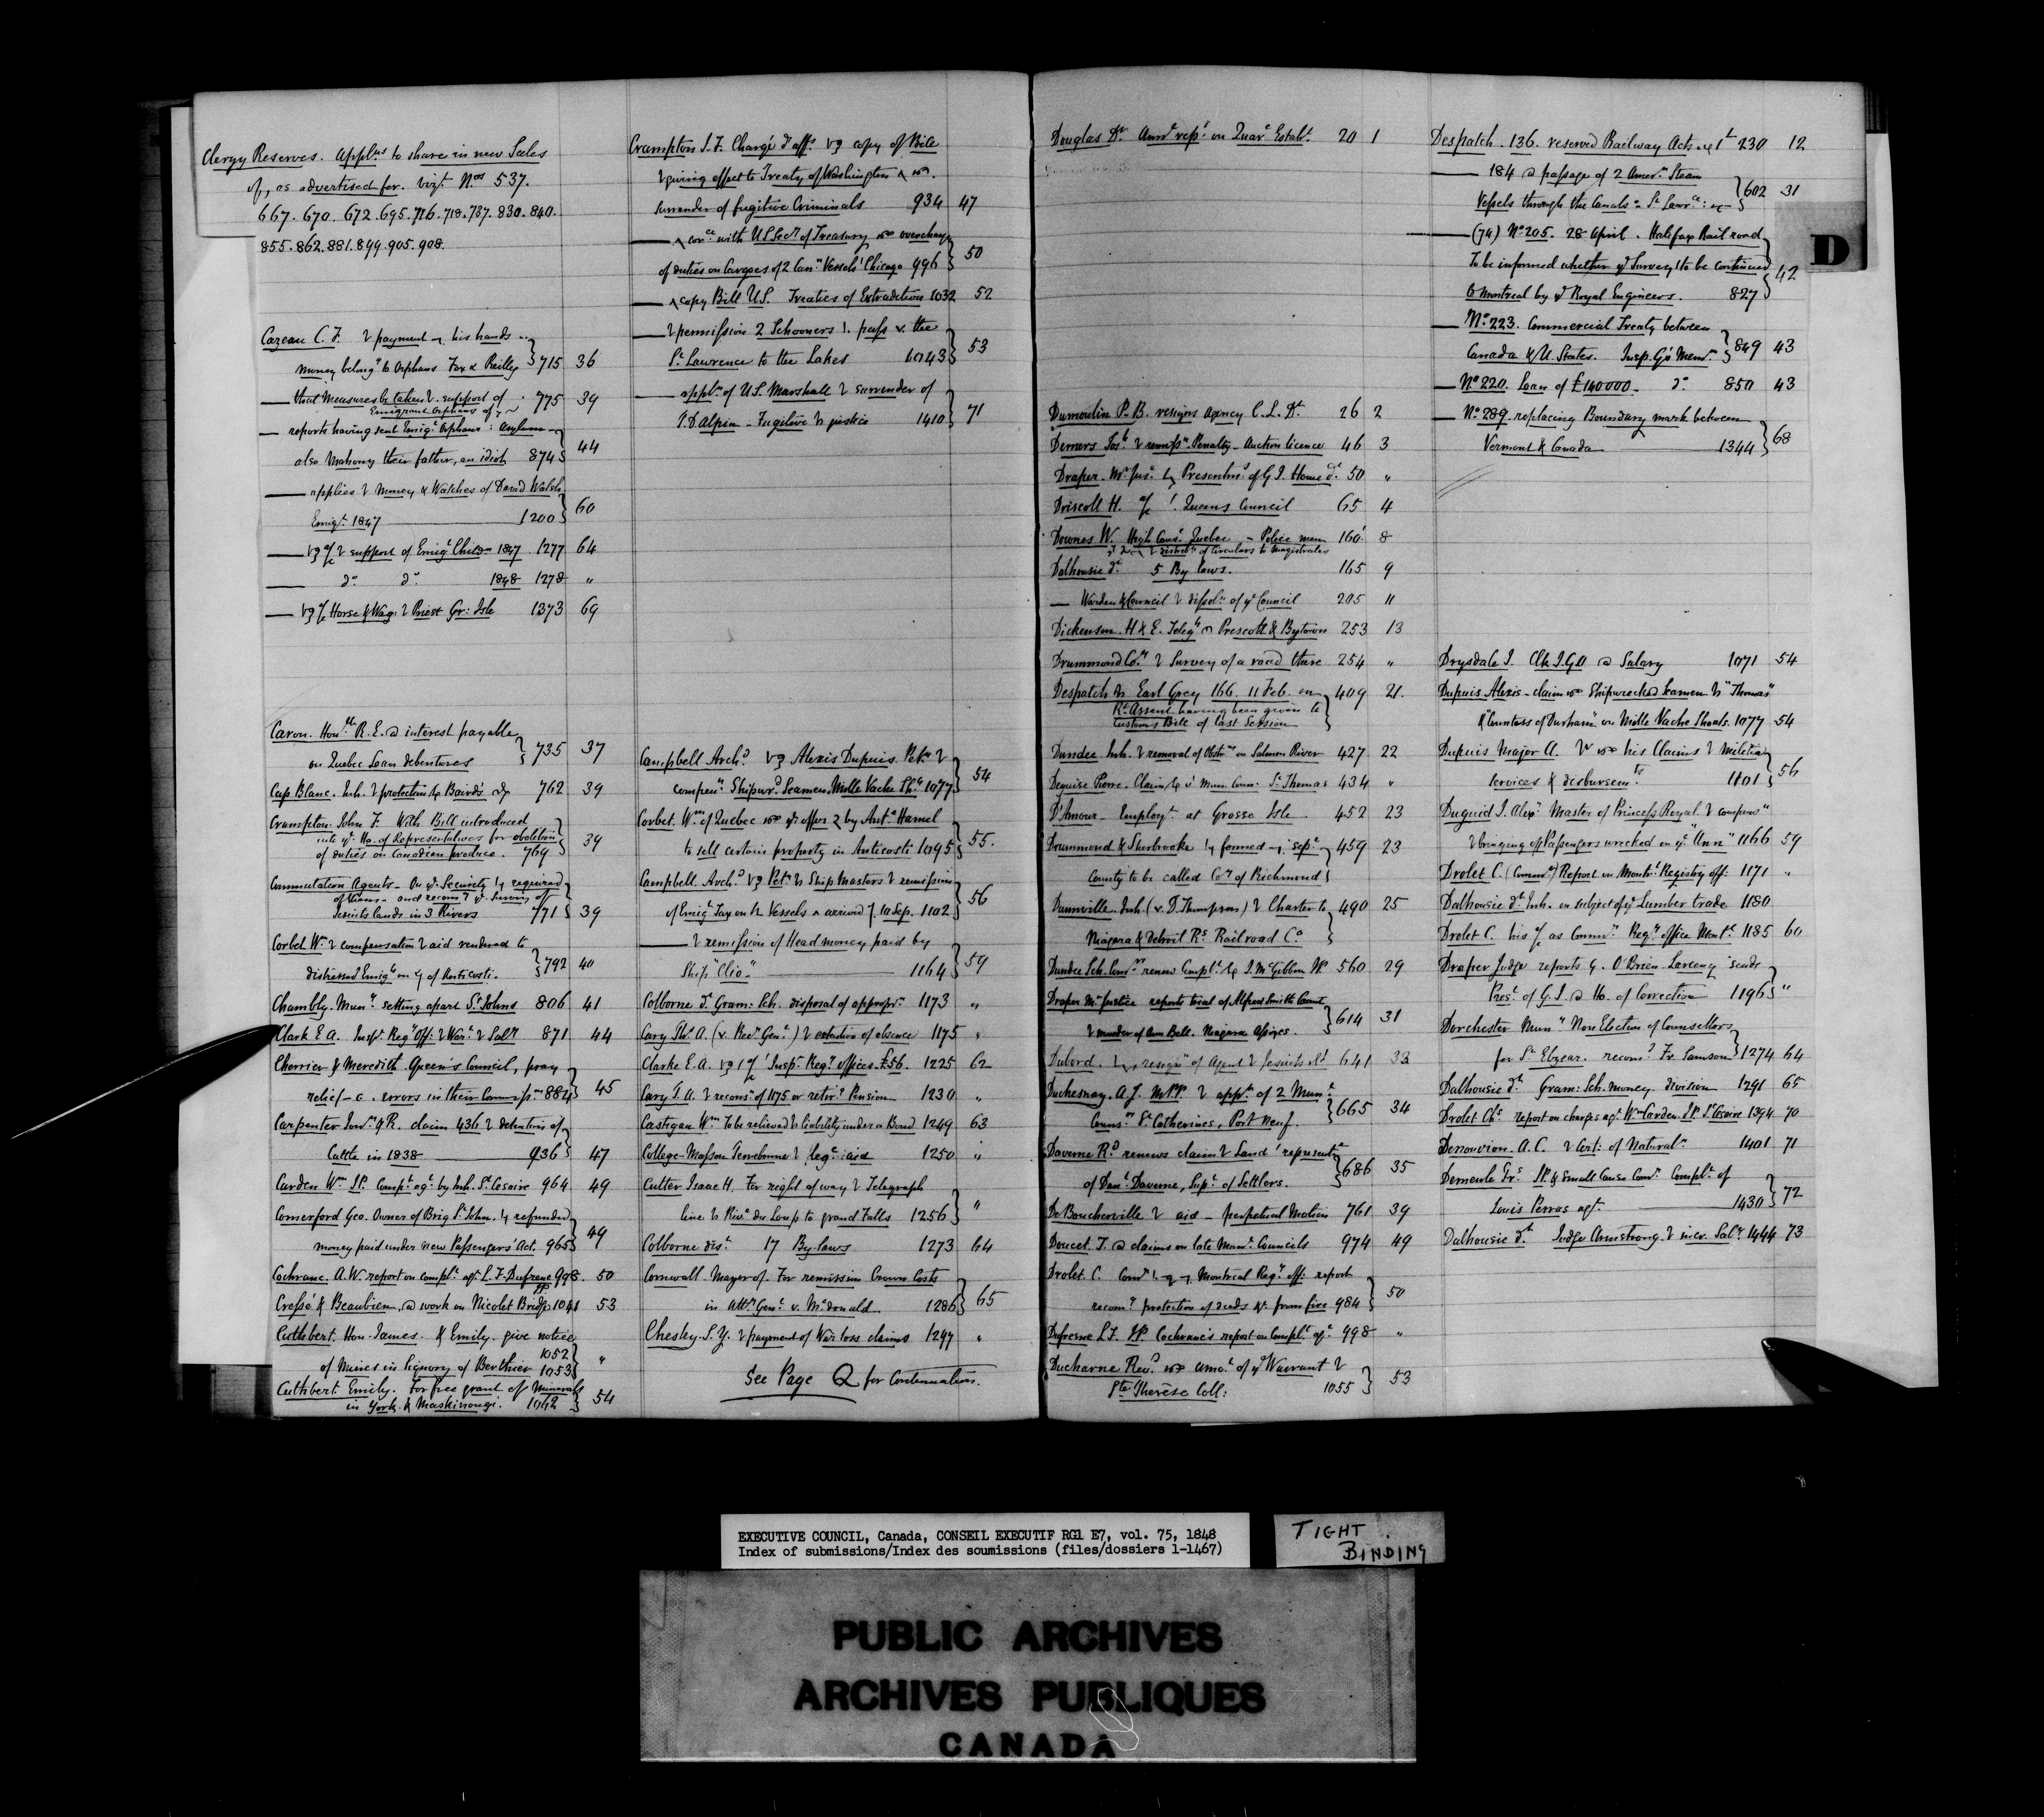 Clergy Reserves. Appl.ns to share in new Sales
of, as advertised for. vizt. Nos 537.
667. 670. 672. 695. 716. 718. 737. 830. 840.
855. 862. 881. 899. 905. 908.
Cazeau C. F. payment his hands
money belong.g to Orphans Fax & Reilly 715 36
— that measures be taken support of 775 39
Emigrant Orphans of
— reports having sent Emigt. Orphans: Asylum
also Mahony their father, an idiot 874 44
— applies Money & Watches of David Walsh
Emigt. 1847 1200 60
— support of Emigt Childn 1847 1277 64
— do. do. 1848 1278 "
— Horse & Wag: Priest Gr: Isle 1373 69
Caron. Honble R. E. interest payable
on Quebec Loan debentures 735 37
Cap Blanc. Inh. protection Baird's 762 39
Crampton John F. With Bill introduced
into ye Ho. of Representatives for abolition
of duties on Canadian produce. 769 39
Commutation Agents - On ye Security required
of them - and recomd ye Survey of
Jesuits lands in 3 Rivers 771 39
Corbet Wm compensation aid rendered to
distressed Emigts on of Anticosti. 792 40
Chambly. Muny setting apart St Johns 806 41
Clark E A. Inspr Regy Off: War: Saly 871 44
Cherrier & Meredith Queen's Council, pray
relief errors in their Commissns 884 45
Carpenter claim 436 detention of
Cattle in 1838 936 47
Carden Wm J.P. Complt. agt by Inh. St Cesaire 964 49
Comerford Geo. Owner of Brig St John. refunded
money paid under new Passengers' Act. 965 49
Cochrane. A. W. report on complt agt L. F. Dufresne JP 998. 50
Cressé & Beaubien work on Nicolet Bridge 1041 53
Cuthbert. Hon. James & Emily. give notice
of Mines in Signory of Berthier 1052 1053 "
Cuthbert Emily. For free grant of Minerals
in York & Maskinongé. 1062 54
Crampton J. F. Chargé d'affs copy of Bill
giving effect to Treaty of Washington
surrender of fugitive Criminals 934 47
— corce with US Secy of Treasury overcharge
of duties on Cargoes of 2 Cann Vessels Chicago 996 50
— copy Bill U.S. Treaties of Extradition 1032 52
— permission 2 Schooners pass the
St Lawrence to the Lakes 1043 53
— appln of U.S. Marshall surrender of
J. D. Alpin - Fugitive justice 1410 71
Campbell Archd Alexis Dupuis. Petn
compenn Shipwrd Seamen Mille Vache Shls 1077 54
Corbet. Wm of Quebec ye offer by Ante Hamel
to sell certain property in Anticosti 1095 55.
Campbell Archd Petn Ship Masters remission
of Emigt Tax on Vessels arrived 10 Sep. 1102 56
— remission of Head money paid by
Ship "Clio" 1164 59
Colborne dt Gram: Sch. disposal of appropn 1173 "
Cary A. (v. Recr Genl) extension of absence 1175 "
Clarke E. A. Inspr Regy Offices £56. 1225 62
Cary T. A. reconsn of 1175 or retirg Pension 1230 "
Castigan Wm To be relieved liability under a Bond 1249 63
College Masson Terrebonne leg: aid 1250 "
Cutter Isaac H. For right of way Telegraph
line Rive du Loup to grand Falls 1256 "
Colborne dist 17 By-laws 1273 64
Cornwall. Mayor of. For remission Crown Costs
in Atty Genl v. McDonald 1286 65
Chesley. S. Y. payment of War loss claims 1297 "
See Page Q for Continuation.
Douglas Dr. Annl rept on Quare Establt. 20 1
Dumoulin P. B. resigns agency C. L. Dt 26 2
Demers Josh remissn Penalty - Auction licence 46 3
Draper. Mr Jus. Presentmt of G. J. Home dt. 50 "
Driscoll H. Queens Council 65 4
Downes W. High Cons. Quebec - Police men 160 8
distribn of Circulars to Magistrates
Dalhousie dt 5 By laws. 165 9
— Warden & Council dissoln of ye Council 205 11
Dickenson. H & E. Telegh Prescott & Bytown 253 13
Drummond Coy Survey of a road there 254 "
Despatch Earl Grey 166. 11 Feb. on 409 21.
Rl Assent having been given to
Customs Bill of last Session
Dundee Inh. removal of Obstrns on Salmon River 427 22
Deguise Pierre. Claim Mun. Coun. St. Thomas 434 "
D'Amour - Employt at Grosse Isle 452 23
Drummond & Sherbrooke formed sepe 459 23
County to be called Coy of Richmond
Dunnville Inh. (v. D. Thompson) Charter to 490 25
Niagara & Detroit Rs. Railroad Co.
Dundee Sch. Comsrs renew Complt J. McGibbon JP 560 29
Draper Mr Justice reports trial of Alfred Smith Count
murder of Ann Bell. Niagara Assizes. 614 31
Dubord. resign of Agent Jesuits 641 33
Duchesnay. A. J. M.P.P. appt of 2 Mun:
Counrs St Catherines, Port neuf. 665 34
Daverne Rd renews claim Land represente
of Danl Daverne, Supt of Settlers. 686 35
De Boucherville aid - perpetual Motion 761 39
Doucet. T. claims on late Muny Councils 974 49
Drolet C. Comr Montreal Regy off: report
recomg protection of deeds &c from fire 984 50
Dufresne L. F. JP. Cochrane's report on Complt agt 998 "
Ducharme Revd amot of ye Warrant
Ste Thérèse Coll: 1055 53
Despatch. 136. reserved Railway Acts 230 12
— 184 passage of 2 Amern Steam
Vessels through the Canals St Lawrce 602 31
— (74) No 205. 28 April. Halifax Rail road
To be informed whether ye Survey to be continued
to Montreal by ye Royal Engineers. 827 42
— No 223. Commercial Treaty between
Canada & U. States. Insp. Gl's Memm 849 43
— No 220. Loan of £140000 - do. 850 43
— No 289. replacing Boundary mark between
Vermont & Canada 1344 68
Drysdale J. Clk I.G.O Salary 1071 54
Dupuis Alexis - claim Shipwrecked Seamen "Thomas"
& "Countess of Durham" on Mille Vache Shoals. 1077 54
Dupuis Major A. his Claims Militia
services & disbursemts 1101 56
Duguid J. Alexr Master of Princess Royal compenn
bringing off Passengers wrecked on ye "Ann" 1166 59
Drolet C. (Commr) Report on Montrl Registry off: 1171 "
Dalhousie dt Inh. on subject of ye Lumber trade 1180
Drolet C. his as Commr Regy office Montl 1185 60
Draper Judge reports G. O'Brien - Larceny sends
Prest of G. J. Ho. of Correction 1196 "
Dorchester Muny Non Election of Counsellors
for St Elzear. recomd Fr. Samson 1274 64
Dalhousie dt Gram: Sch. money division 1291 65
Drolet Chs report on charges agt Wm Carden JP. St Cesaire 1394 70
Denouvion A. C. Cert: of Naturaln 1401 71
Demeule Frs JP. & Small Cause Comr Complt of
Louis Perras agt. 1430 72
Dalhousie dt Judge Armstrong incr. Saly 1444 73
D
EXECUTIVE COUNCIL, Canada, CONSEIL EXECUTIF RG1 E7, vol. 75, 1848
Index of submissions/Index des soumissions (files/dossiers 1-1467)
TIGHT
BINDING
PUBLIC ARCHIVES
ARCHIVES PUBLIQUES
CANADA